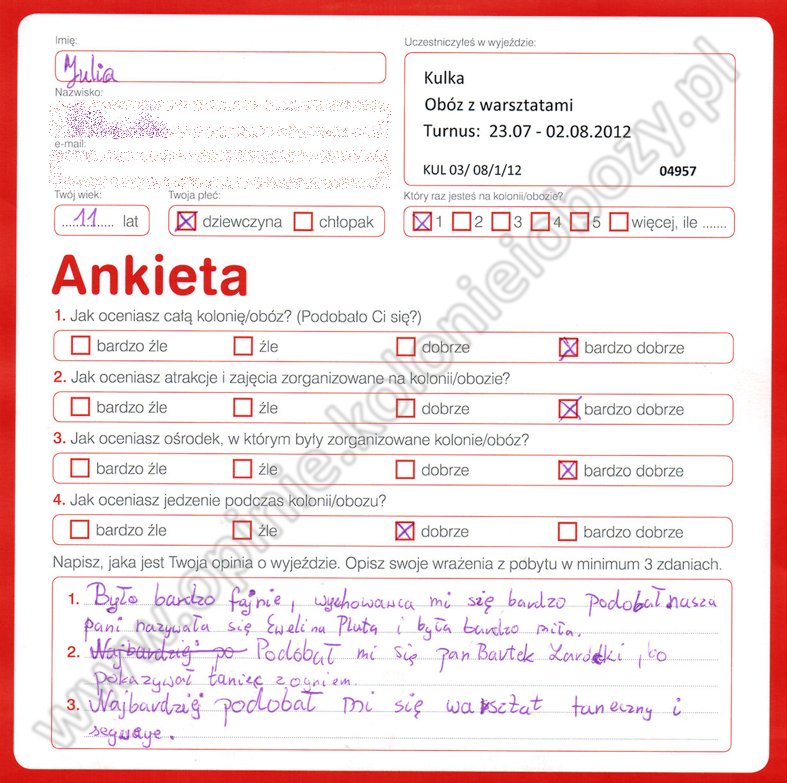 Imię:
Julia
Nazwisko:
e-mail:
Twój wiek:
11 lat
Twoja płeć:
dziewczyna chłopak
Uczestniczyłeś w wyjeździe:
Kulka
Obóz z warsztatami
Turnus: 23.07 - 02.08.2012
KUL 03/ 08/1/12 04957
Który raz jesteś na kolonii/obozie?
1 2 3 4 5 więcej, ile .......
Ankieta
1. Jak oceniasz całą kolonię/obóz? (Podobało Ci się?)
bardzo źle źle dobrze bardzo dobrze
2. Jak oceniasz atrakcje i zajęcia zorganizowane na kolonii/obozie?
bardzo źle źle dobrze bardzo dobrze
3. Jak oceniasz ośrodek, w którym były zorganizowane kolonie/obóz?
bardzo źle źle dobrze bardzo dobrze
4. Jak oceniasz jedzenie podczas kolonii/obozu?
bardzo źle źle dobrze bardzo dobrze
Napisz, jaka jest Twoja opinia o wyjeździe. Opisz swoje wrażenia z pobytu w minimum 3 zdaniach.
1. Było bardzo fajnie, wychowawca mi się bardzo podobał nasza
pani nazywała się Ewelina Pluta i była bardzo miła.
2. Najbardziej po Podobał mi się pan Bartek, bo
pokazywał taniec z ogniem.
3. Najbardziej podobał mi się warsztat taneczny i
segwaye.
www.opinie.kolonieiobozy.pl